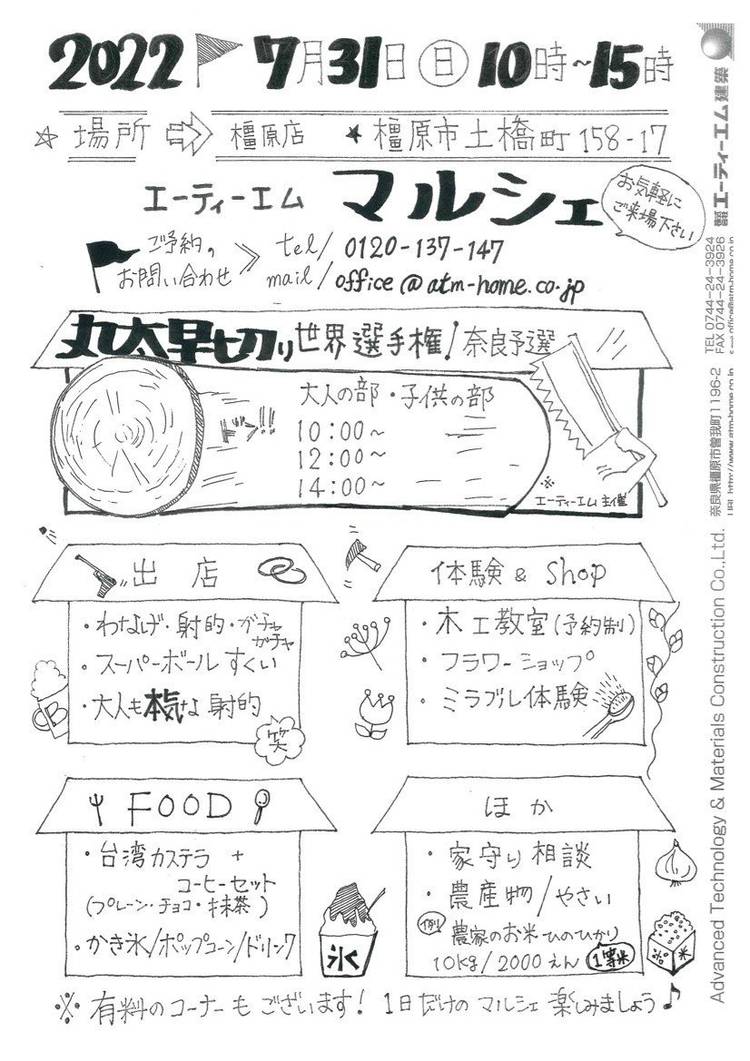 2022 7月31日㊐ 10時~15時
☆場所⇨橿原店 ★橿原市土橋町158-17
エーティーエム マルシェ
お気軽に
ご来場下さい
ご予約の
お問い合わせ
tel/ 0120-137-147
mail/ office@atm-home.co.jp
丸太早切り世界選手権!奈良予選
大人の部・子供の部
ドン!!
10:00~
12:00~
14:00~
※エーティーエム主催
出店
・わなげ・射的・ガチャガチャ
・スーパーボールすくい
・大人も本気な射的
笑
体験 & Shop
・木工教室(予約制)
・フラワーショップ
・ミラブル体験
FOOD
・台湾カステラ +
コーヒーセット
(プレーン・チョコ・抹茶)
・かき氷/ポップコーン/ドリンク
氷
ほか
・家守り相談
・農産物/やさい
例 農家のお米ひのひかり
10kg/2000えん 1等米
米
※有料のコーナーもございます! 1日だけのマルシェ楽しみましょう♪
エーティーエム建築
TEL 0744-24-3924
FAX 0744-24-3926
奈良県橿原市曽我町1196-2
URL http://www.atm-home.co.jp
Advanced Technology & Materials Construction Co.,Ltd.